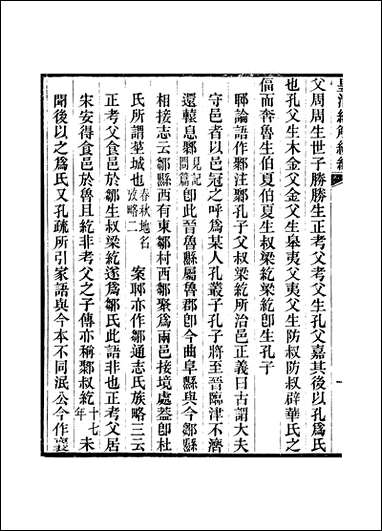 皇清經解續編
父周周生世子勝勝生正考父考父生孔父嘉其後以孔爲氏
也孔父生木金父金父生皋夷父夷父生防叔防叔辟華氏之
偪而奔魯生伯夏伯夏生叔梁紇叔梁紇卽生孔子
郰論語作鄹注鄹孔子父叔梁紇所治邑正義曰古謂大夫
守邑者以邑冠之呼爲某人孔叢子孔子將至晉臨津不濟
還轅息鄹見記問篇卽此晉魯縣屬魯郡卽今曲阜縣與今鄒縣
相接志云鄒縣西有東鄒村西鄒聚爲兩邑接境處蓋卽杜
氏所謂莝城也春秋地名攷略二案郰亦作鄒通志氏族略三云
正考父食邑於鄒生叔梁紇遂爲鄒氏此語非也正考父居
宋安得食邑於魯且紇非考父之子傳亦稱鄹叔紇十七年未
聞後以之爲氏又孔疏所引家語與今本不同泯公今作襄